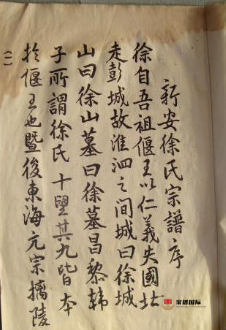 新安徐氏宗譜序
徐自吾祖偃王以仁義失國北
走彭城故淮泗之間城曰徐城
山曰徐山墓曰徐墓昌黎韩
子所謂徐氏十望其九皆本
於偃王也暨後東海元宗摛陵
(一)
家谱国际